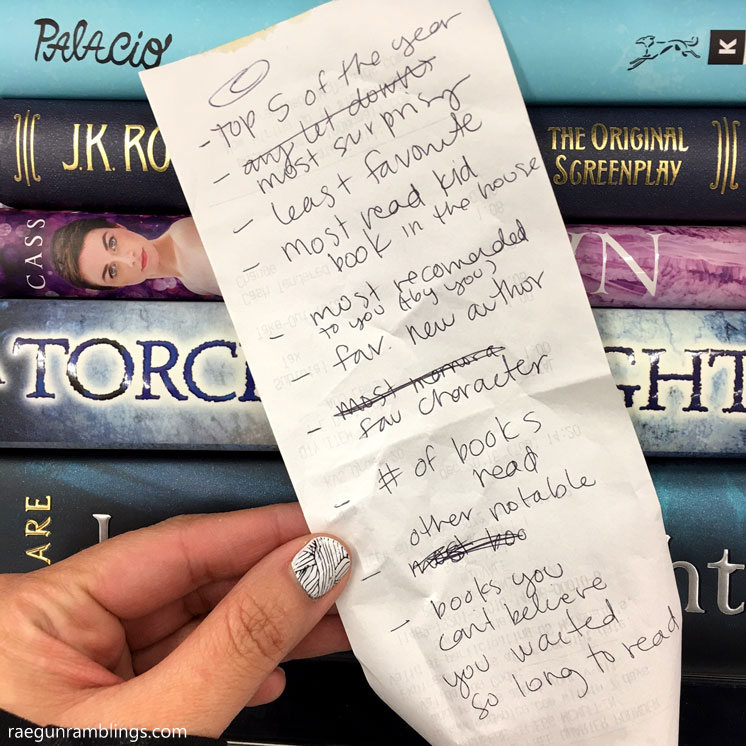 PALACIO
K
J.K. RO
THE ORIGINAL
SCREENPLAY
CASS
N
TORC
GHT
ARE
nt
- top 5 of the year
- any let downs
most surprising
- least favorite
- most read kid
book in the house
- most recomended
to you (by you)
- fav. new author
- most
fav character
- # of books
read
other notable
- most boo
- books you
can't believe
you waited
so long to read
raegunramblings.com